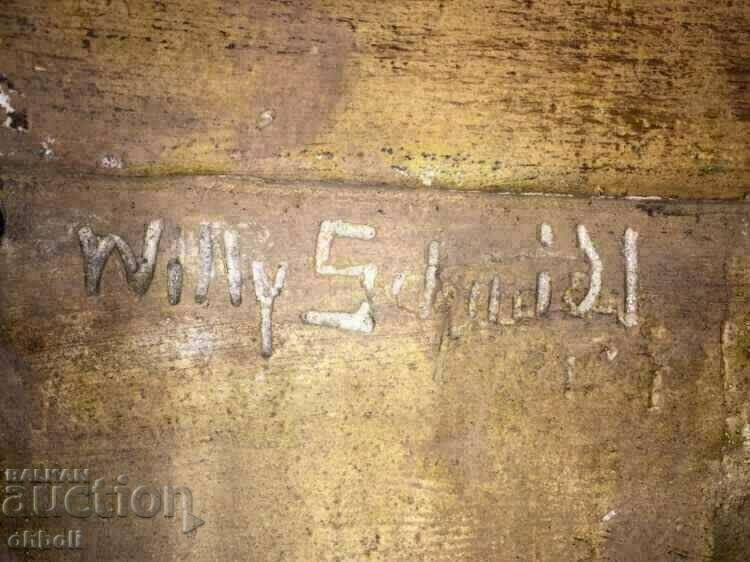 Willy Schmidl
BALKAN
auction
ohboli